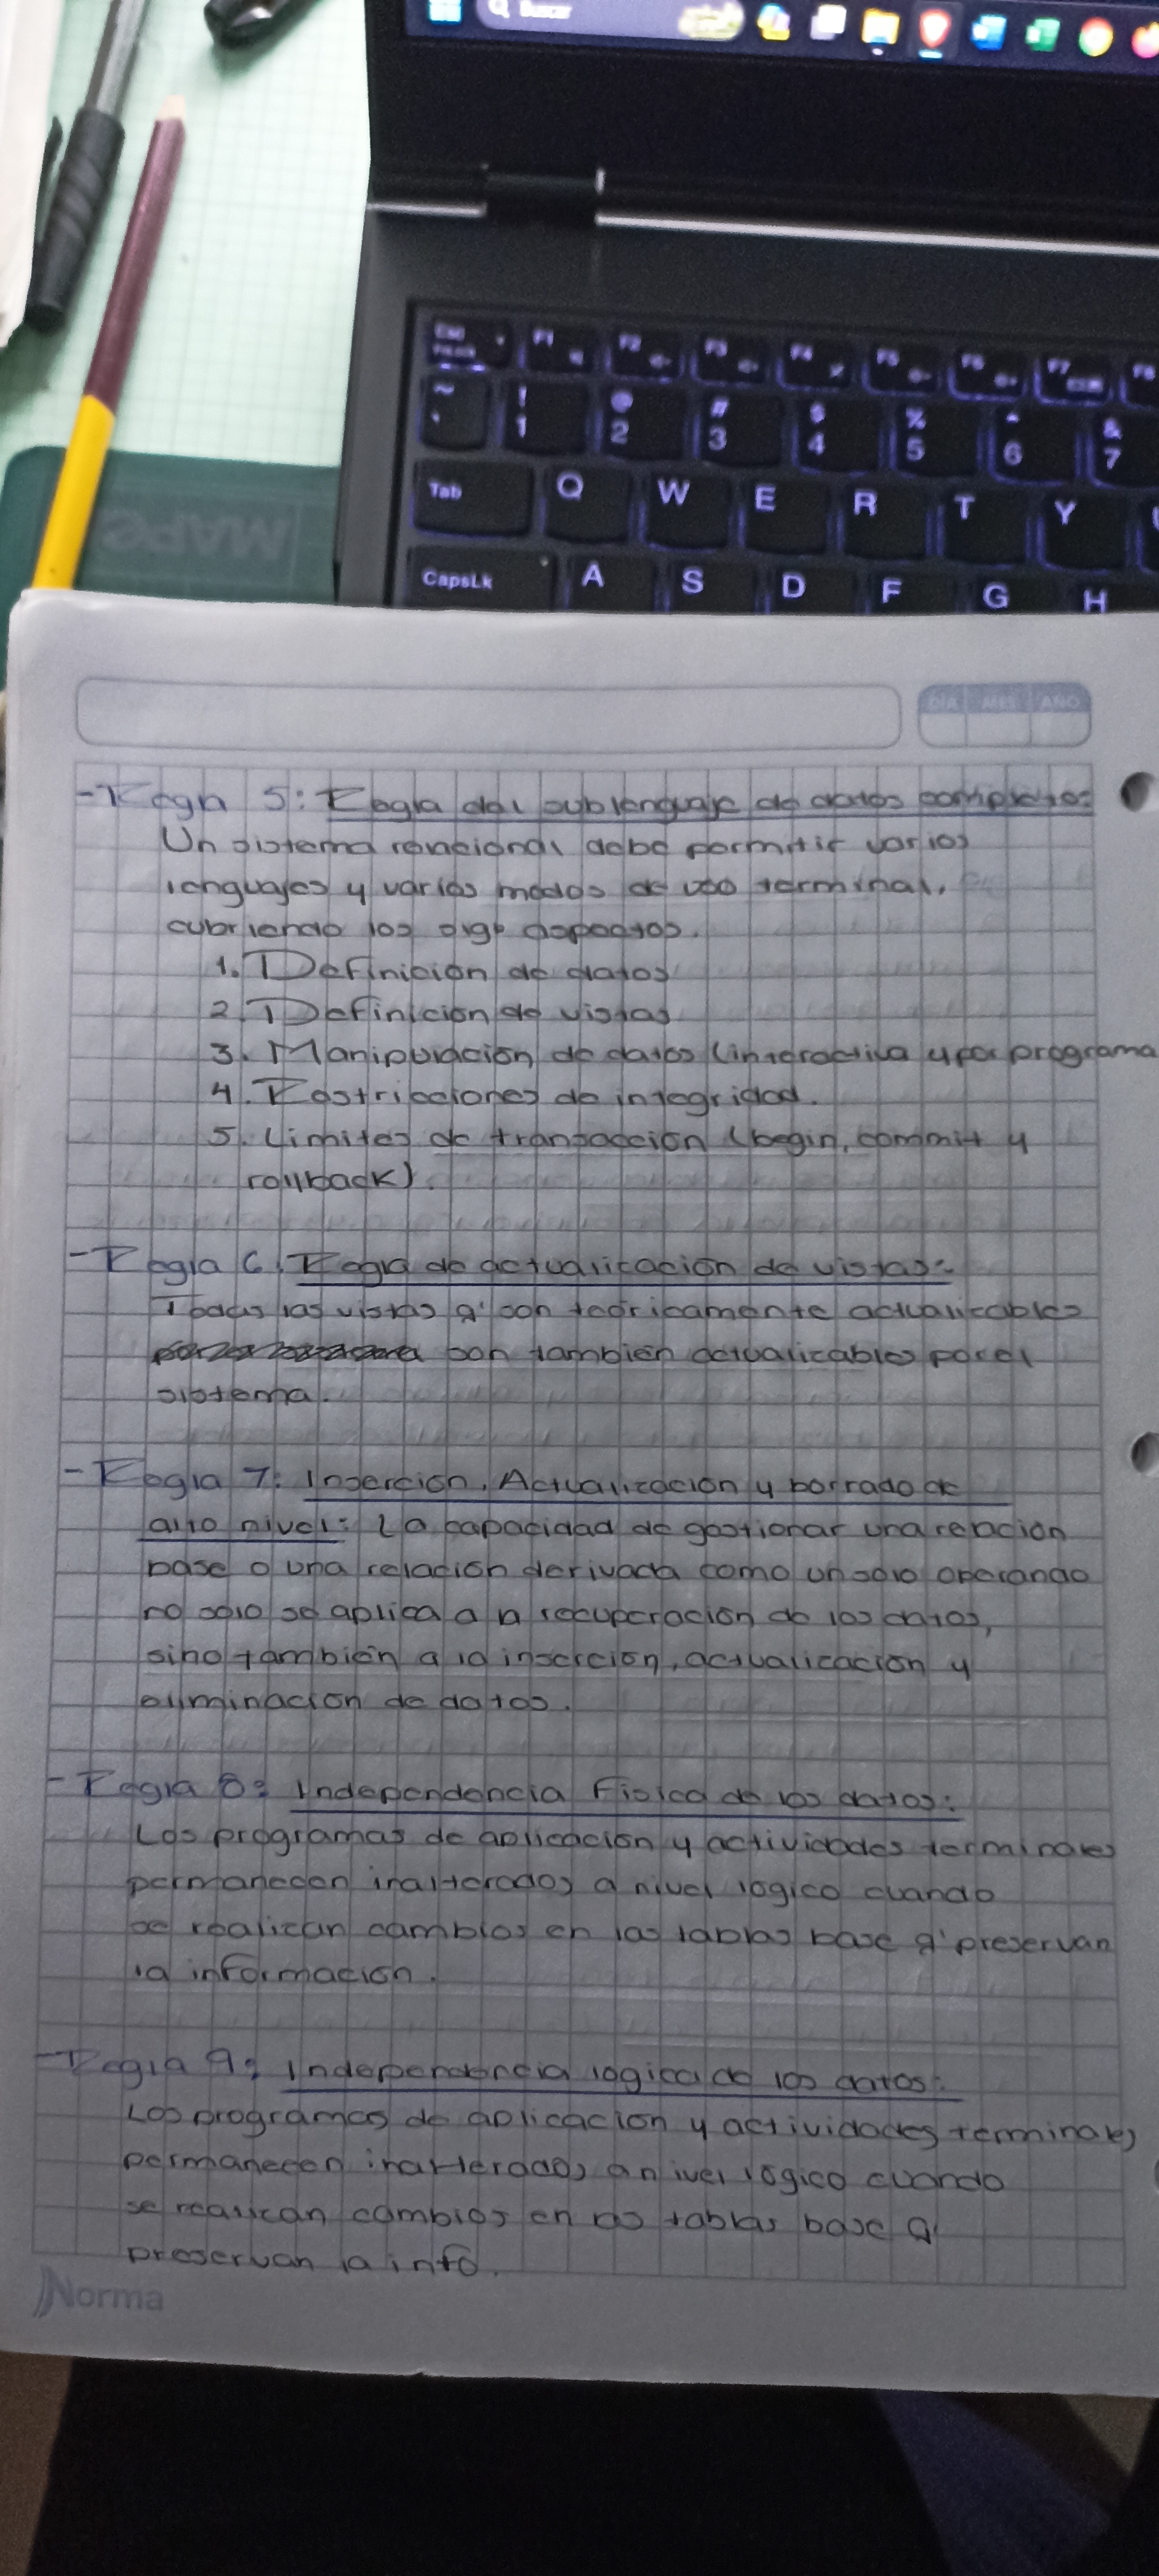 Buscar
Esc
F1
F2
F3
F4
F5
F6
F7
F8
~
! 1
@ 2
# 3
$ 4
% 5
^ 6
& 7
Tab Q W E R T Y
CapsLk A S D F G H
MAPS
DIA MES AÑO
- Regla 5: Regla del sublenguaje de datos completo:
Un sistema relacional debe permitir varios
lenguajes y varios modos de uso terminal,
cubriendo los sigs aspectos.
1. Definición de datos
2. Definición de vistas
3. Manipulación de datos (interactiva y por programa
4. Restricciones de integridad.
5. Limites de transacción (begin, commit y
rollback).
- Regla 6. Regla de actualización de vistas:
Todas las vistas q' son teóricamente actualizables
son también actualizables por el
sistema.
- Regla 7: Inserción, Actualización y borrado de
alto nivel: La capacidad de gestionar una relación
base o una relación derivada como un solo operando
no solo se aplica a la recuperación de los datos,
sino también a la inserción, actualización y
eliminación de datos.
- Regla 8: Independencia Física de los datos:
Los programas de aplicación y actividades terminales
permanecen inalterados a nivel lógico cuando
se realizan cambios en las tablas base q' preservan
la información.
- Regla 9: Independencia lógica de los datos:
Los programas de aplicación y actividades terminales
permanecen inalterados a nivel lógico cuando
se realizan cambios en las tablas base q'
preservan la info.
Norma